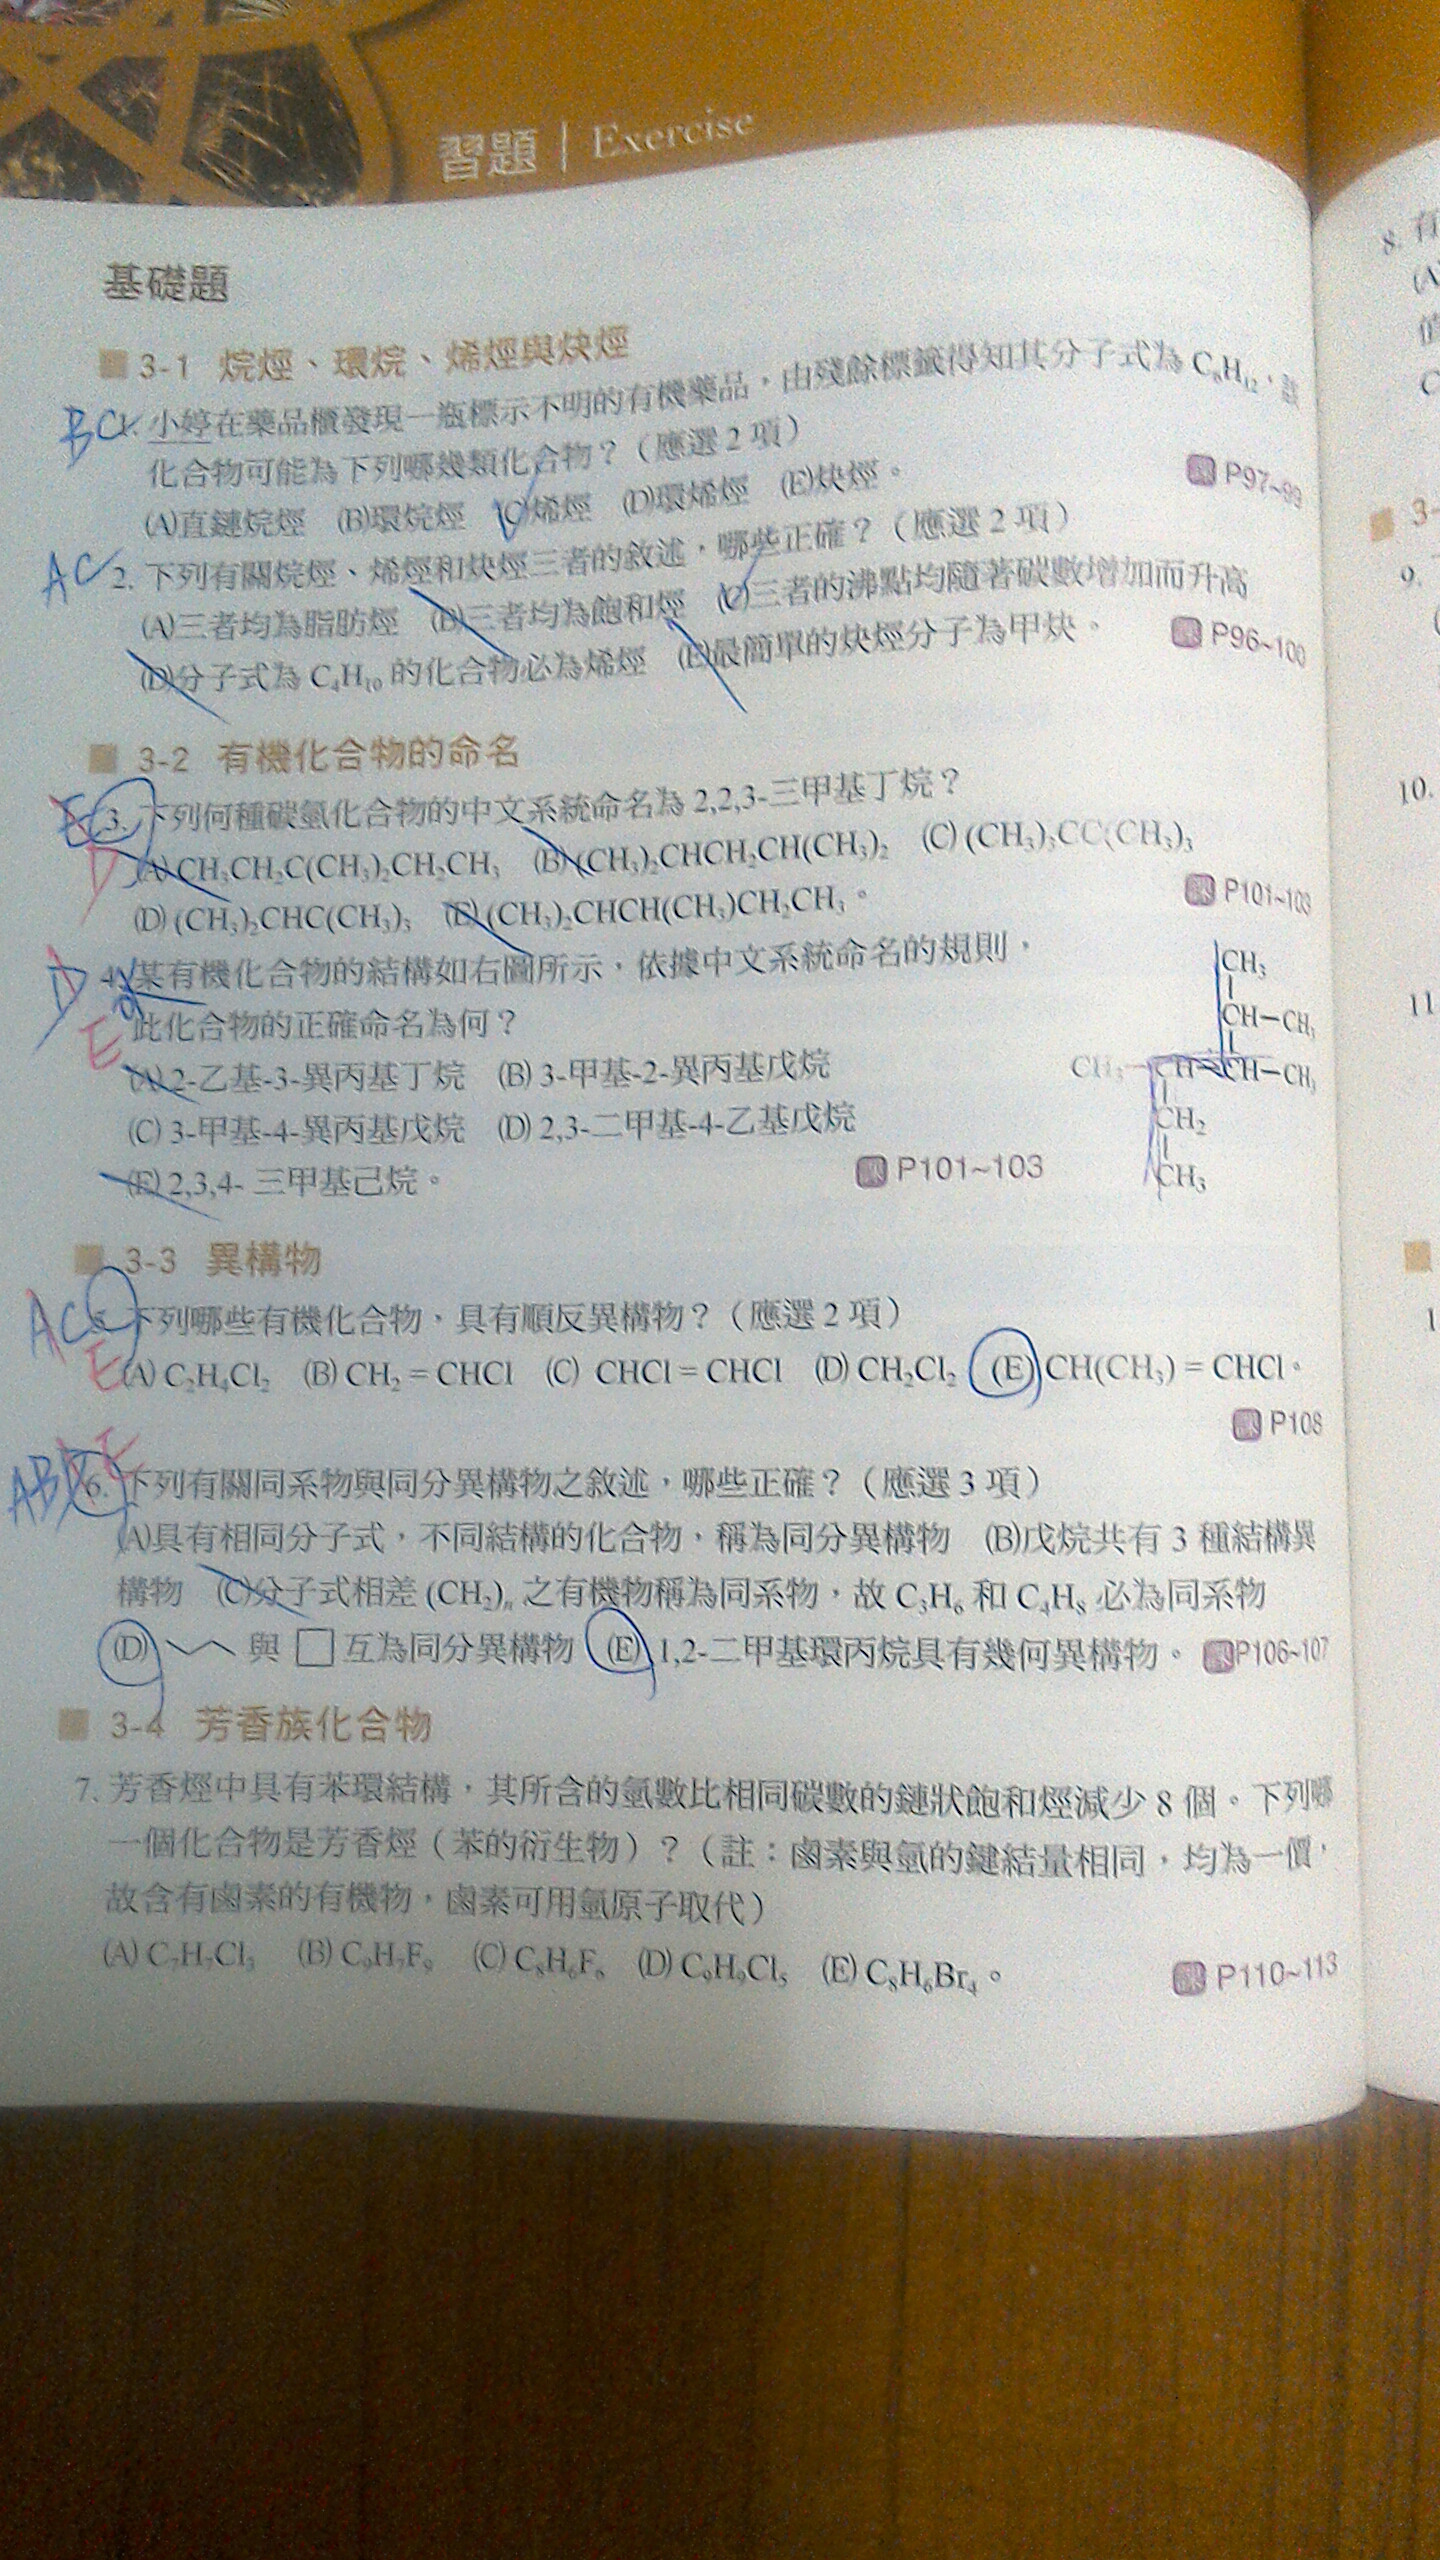 習題 | Exercise
基礎題
3-1 烷烴、環烷、烯烴與炔烴
BC 1. 小婷在藥品櫃發現一瓶標示不明的有機藥品，由殘餘標籤得知其分子式為 C₆H₁₂，該
化合物可能為下列哪幾類化合物？（應選 2 項）
(A)直鏈烷烴 (B)環烷烴 (C)烯烴 (D)環烯烴 (E)炔烴。 P97~99
AC 2. 下列有關烷烴、烯烴和炔烴三者的敘述，哪些正確？（應選 2 項）
(A)三者均為脂肪烴 (B)三者均為飽和烴 (C)三者的沸點均隨著碳數增加而升高
(D)分子式為 C₄H₁₀ 的化合物必為烯烴 (E)最簡單的炔烴分子為甲炔。 P96~100
3-2 有機化合物的命名
E 3. 下列何種碳氫化合物的中文系統命名為 2,2,3-三甲基丁烷？
D (A) CH₃CH₂C(CH₃)₂CH₂CH₃ (B) (CH₃)₂CHCH₂CH(CH₃)₂ (C) (CH₃)₃CC(CH₃)₃
(D) (CH₃)₂CHC(CH₃)₃ (E) (CH₃)₂CHCH(CH₃)CH₂CH₃。 P101~103
D 4. 某有機化合物的結構如右圖所示，依據中文系統命名的規則，
E 此化合物的正確命名為何？
(A) 2-乙基-3-異丙基丁烷 (B) 3-甲基-2-異丙基戊烷
(C) 3-甲基-4-異丙基戊烷 (D) 2,3-二甲基-4-乙基戊烷
(E) 2,3,4- 三甲基己烷。 P101~103
CH₃
CH－CH₃
CH₃－CH－CH－CH₃
CH₂
CH₃
3-3 異構物
AC 5. 下列哪些有機化合物，具有順反異構物？（應選 2 項）
E (A) C₂H₄Cl₂ (B) CH₂ = CHCl (C) CHCl = CHCl (D) CH₂Cl₂ (E) CH(CH₃) = CHCl。
P108
AB E 6. 下列有關同系物與同分異構物之敘述，哪些正確？（應選 3 項）
(A)具有相同分子式，不同結構的化合物，稱為同分異構物 (B)戊烷共有 3 種結構異
構物 (C)分子式相差 (CH₂)ₙ 之有機物稱為同系物，故 C₃H₆ 和 C₄H₈ 必為同系物
(D) 與 互為同分異構物 (E) 1,2-二甲基環丙烷具有幾何異構物。 P106~107
3-4 芳香族化合物
7. 芳香烴中具有苯環結構，其所含的氫數比相同碳數的鏈狀飽和烴減少 8 個。下列哪
一個化合物是芳香烴（苯的衍生物）？（註：鹵素與氫的鍵結量相同，均為一價，
故含有鹵素的有機物，鹵素可用氫原子取代）
(A) C₇H₇Cl₃ (B) C₉H₇F₉ (C) C₈H₆F₆ (D) C₉H₉Cl₅ (E) C₈H₆Br₄。 P110~113
8. 有
(A
值
C
3-
9.
10.
11
1